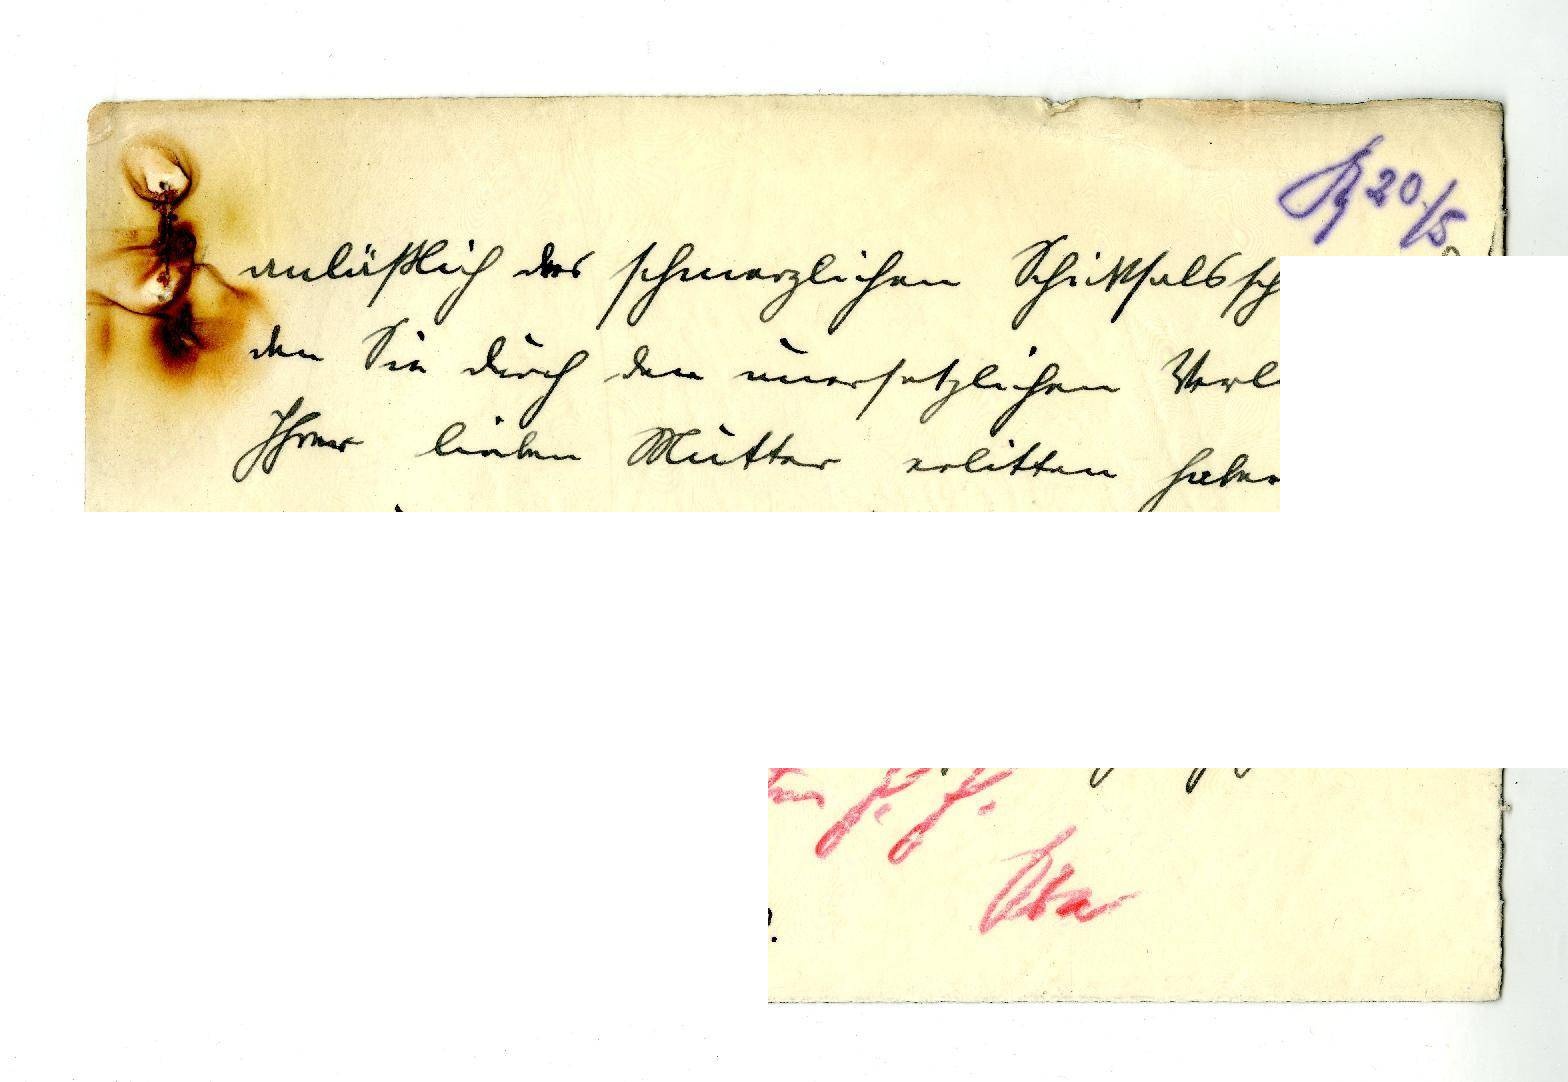 20/5
anläßlich des schmerzlichen Schicksalssch
den Sie durch den unersetzlichen Verl
Ihrer lieben Mutter erlitten haben